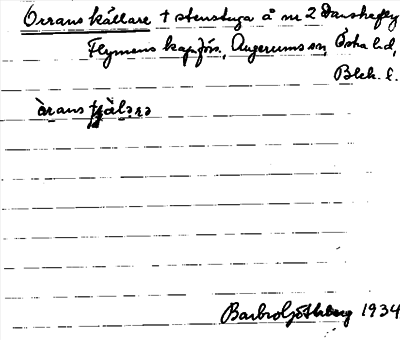 Orrans källare + stenstuga å nr 2 Danskefly
Flymens kapförs. Augerums sn, Östra hd,
Blek. l.
òrans tjälarə
Barbro Göthberg 1934